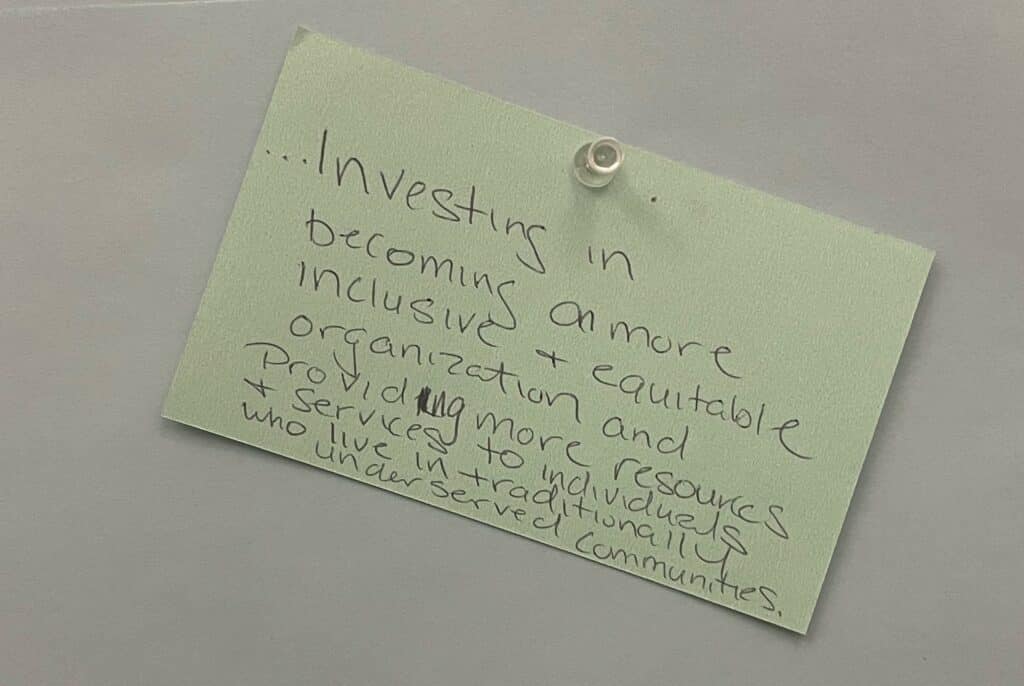 ...Investing in
becoming an more
inclusive + equitable
organization and
Providing more resources
+ services to individuals
who live in traditionally
underserved communities.